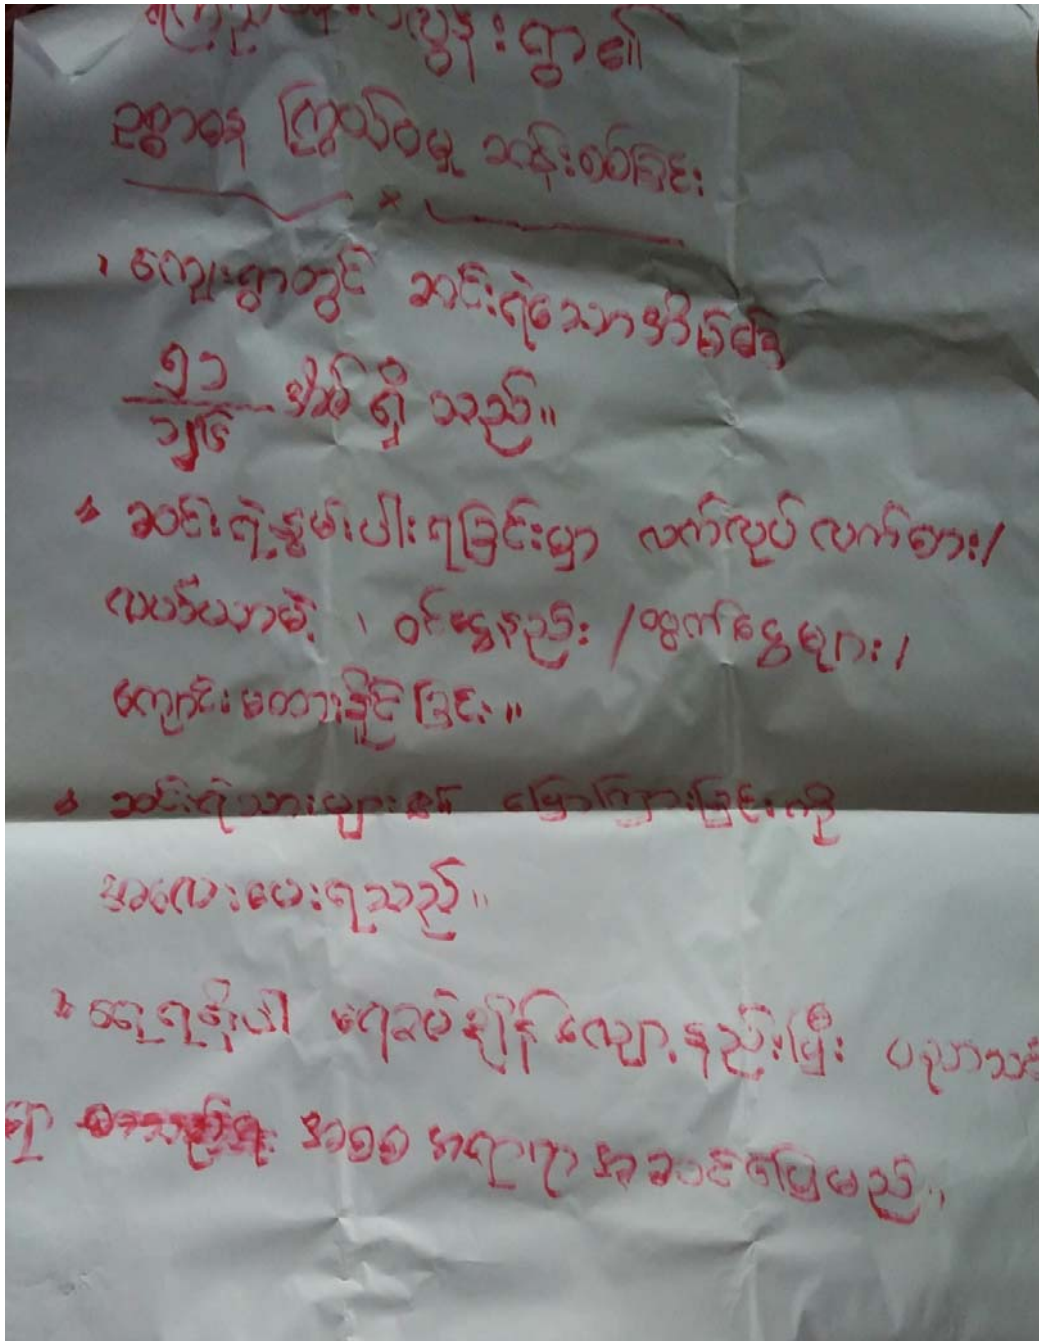 ရွာ၏
ဥစ္စာဓန ကြွယ်ဝမှု ဆန်းစစ်ခြင်း
ကျေးရွာတွင် ဆင်းရဲသောအိမ်ခြေ
၅၁
၁၂၆ အိမ် ရှိ သည်။
ဆင်းရဲနွမ်းပါးရခြင်းမှာ လက်လုပ် လက်စား/
လယ်ယာမဲ့၊ ဝင်ငွေနည်း / ထွက်ငွေများ/
ကျောင်းမထားနိုင်ခြင်း။
ဆင်းရဲသားများ၏ ပြောကြားခြင်းကို
အလေးပေးရသည်။
ရေရရှိပါ ရေခပ်ချိန် လျော့နည်းပြီး
အစစ အရာရာ အဆင်ပြေမည်။